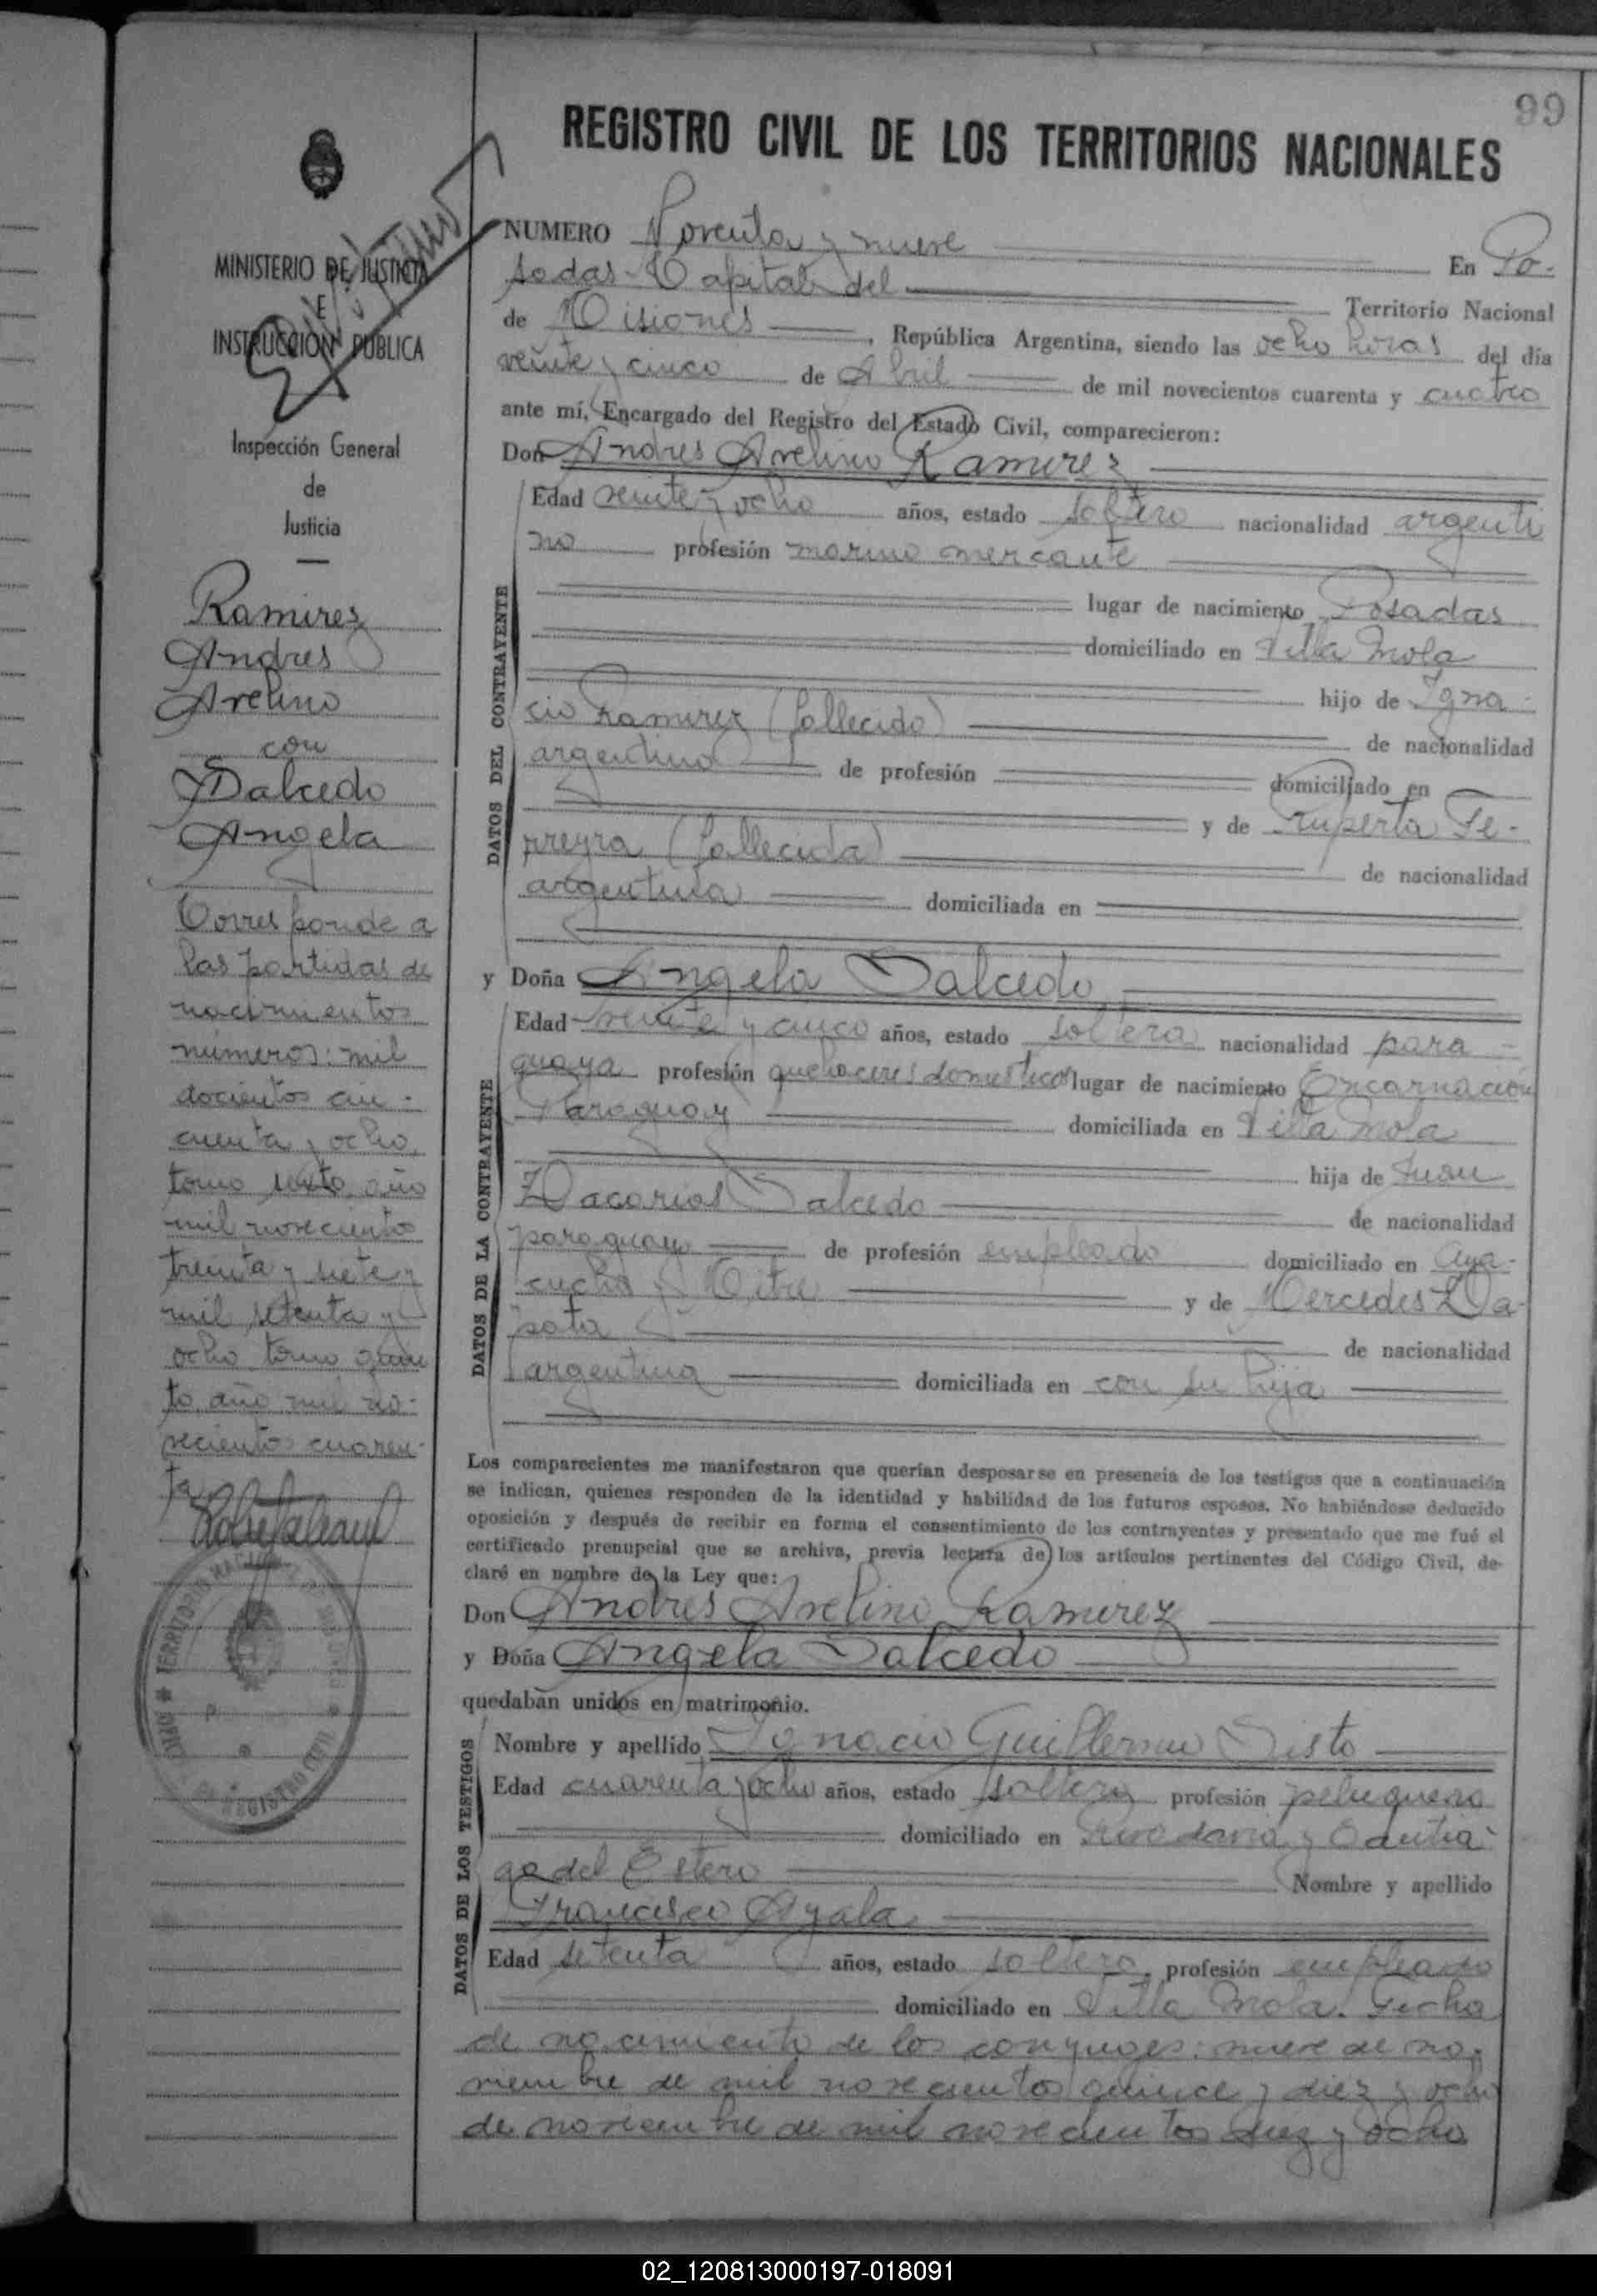 99
REGISTRO CIVIL DE LOS TERRITORIOS NACIONALES
MINISTERIO DE JUSTICIA
E
INSTRUCCION PUBLICA
Inspección General
de
Justicia
Ramirez
Andres
Avelino
con
Salcedo
Angela
Corresponde a
las partidas de
nacimientos
números: mil
docientos cin-
cuenta y ocho,
tomo sexto, año
mil novecientos
treinta y siete y
mil setenta y
ocho tomo quin
to, año mil no-
vecientos cuaren-
ta
TERRITORIO NACIONAL DE MISIONES
REGISTRO CIVIL
NUMERO Noventa y nueve En Po-
sadas - Capital del Territorio Nacional
de Misiones, República Argentina, siendo las ocho horas del día
veinte y cinco de Abril de mil novecientos cuarenta y cuatro
ante mí, Encargado del Registro del Estado Civil, comparecieron:
Don Andres Avelino Ramirez
DATOS DEL CONTRAYENTE
Edad veinte y ocho años, estado soltero nacionalidad argenti
no profesión marino mercante
lugar de nacimiento Posadas
domiciliado en Villa Mola
hijo de Igna-
cio Ramirez (fallecido)
de nacionalidad
argentino de profesión domiciliado en
y de Ruperta Fe-
rreyra (fallecida)
de nacionalidad
argentina domiciliada en
y Doña Angela Salcedo
DATOS DE LA CONTRAYENTE
Edad veinte y cinco años, estado soltera nacionalidad para-
guaya profesión quehaceres domesticos lugar de nacimiento Encarnación
Paraguay domiciliada en Villa Mola
hija de Juan
Zacarias Salcedo
de nacionalidad
paraguayo de profesión empleado domiciliado en Aya-
cucho y Mitre y de Mercedes Za-
pata
de nacionalidad
argentina domiciliada en con su hija
Los comparecientes me manifestaron que querían desposarse en presencia de los testigos que a continuación
se indican, quienes responden de la identidad y habilidad de los futuros esposos. No habiéndose deducido
oposición y después de recibir en forma el consentimiento de los contrayentes y presentado que me fué el
certificado prenupcial que se archiva, previa lectura de los artículos pertinentes del Código Civil, de-
claré en nombre de la Ley que:
Don Andres Avelino Ramirez
y Doña Angela Salcedo
quedaban unidos en matrimonio.
DATOS DE LOS TESTIGOS
Nombre y apellido Ignacio Guillermo Sisto
Edad cuarenta y ocho años, estado soltero profesión peluquero
domiciliado en Rivadavia y Santia-
go del Estero
Nombre y apellido
Francisco Ayala
Edad setenta años, estado soltero, profesión empleado
domiciliado en Villa Mola. Fecha
de nacimiento de los conyuges: nueve de no-
viembre de mil novecientos quince y diez y ocho
de noviembre de mil novecientos diez y ocho
02_120813000197-018091